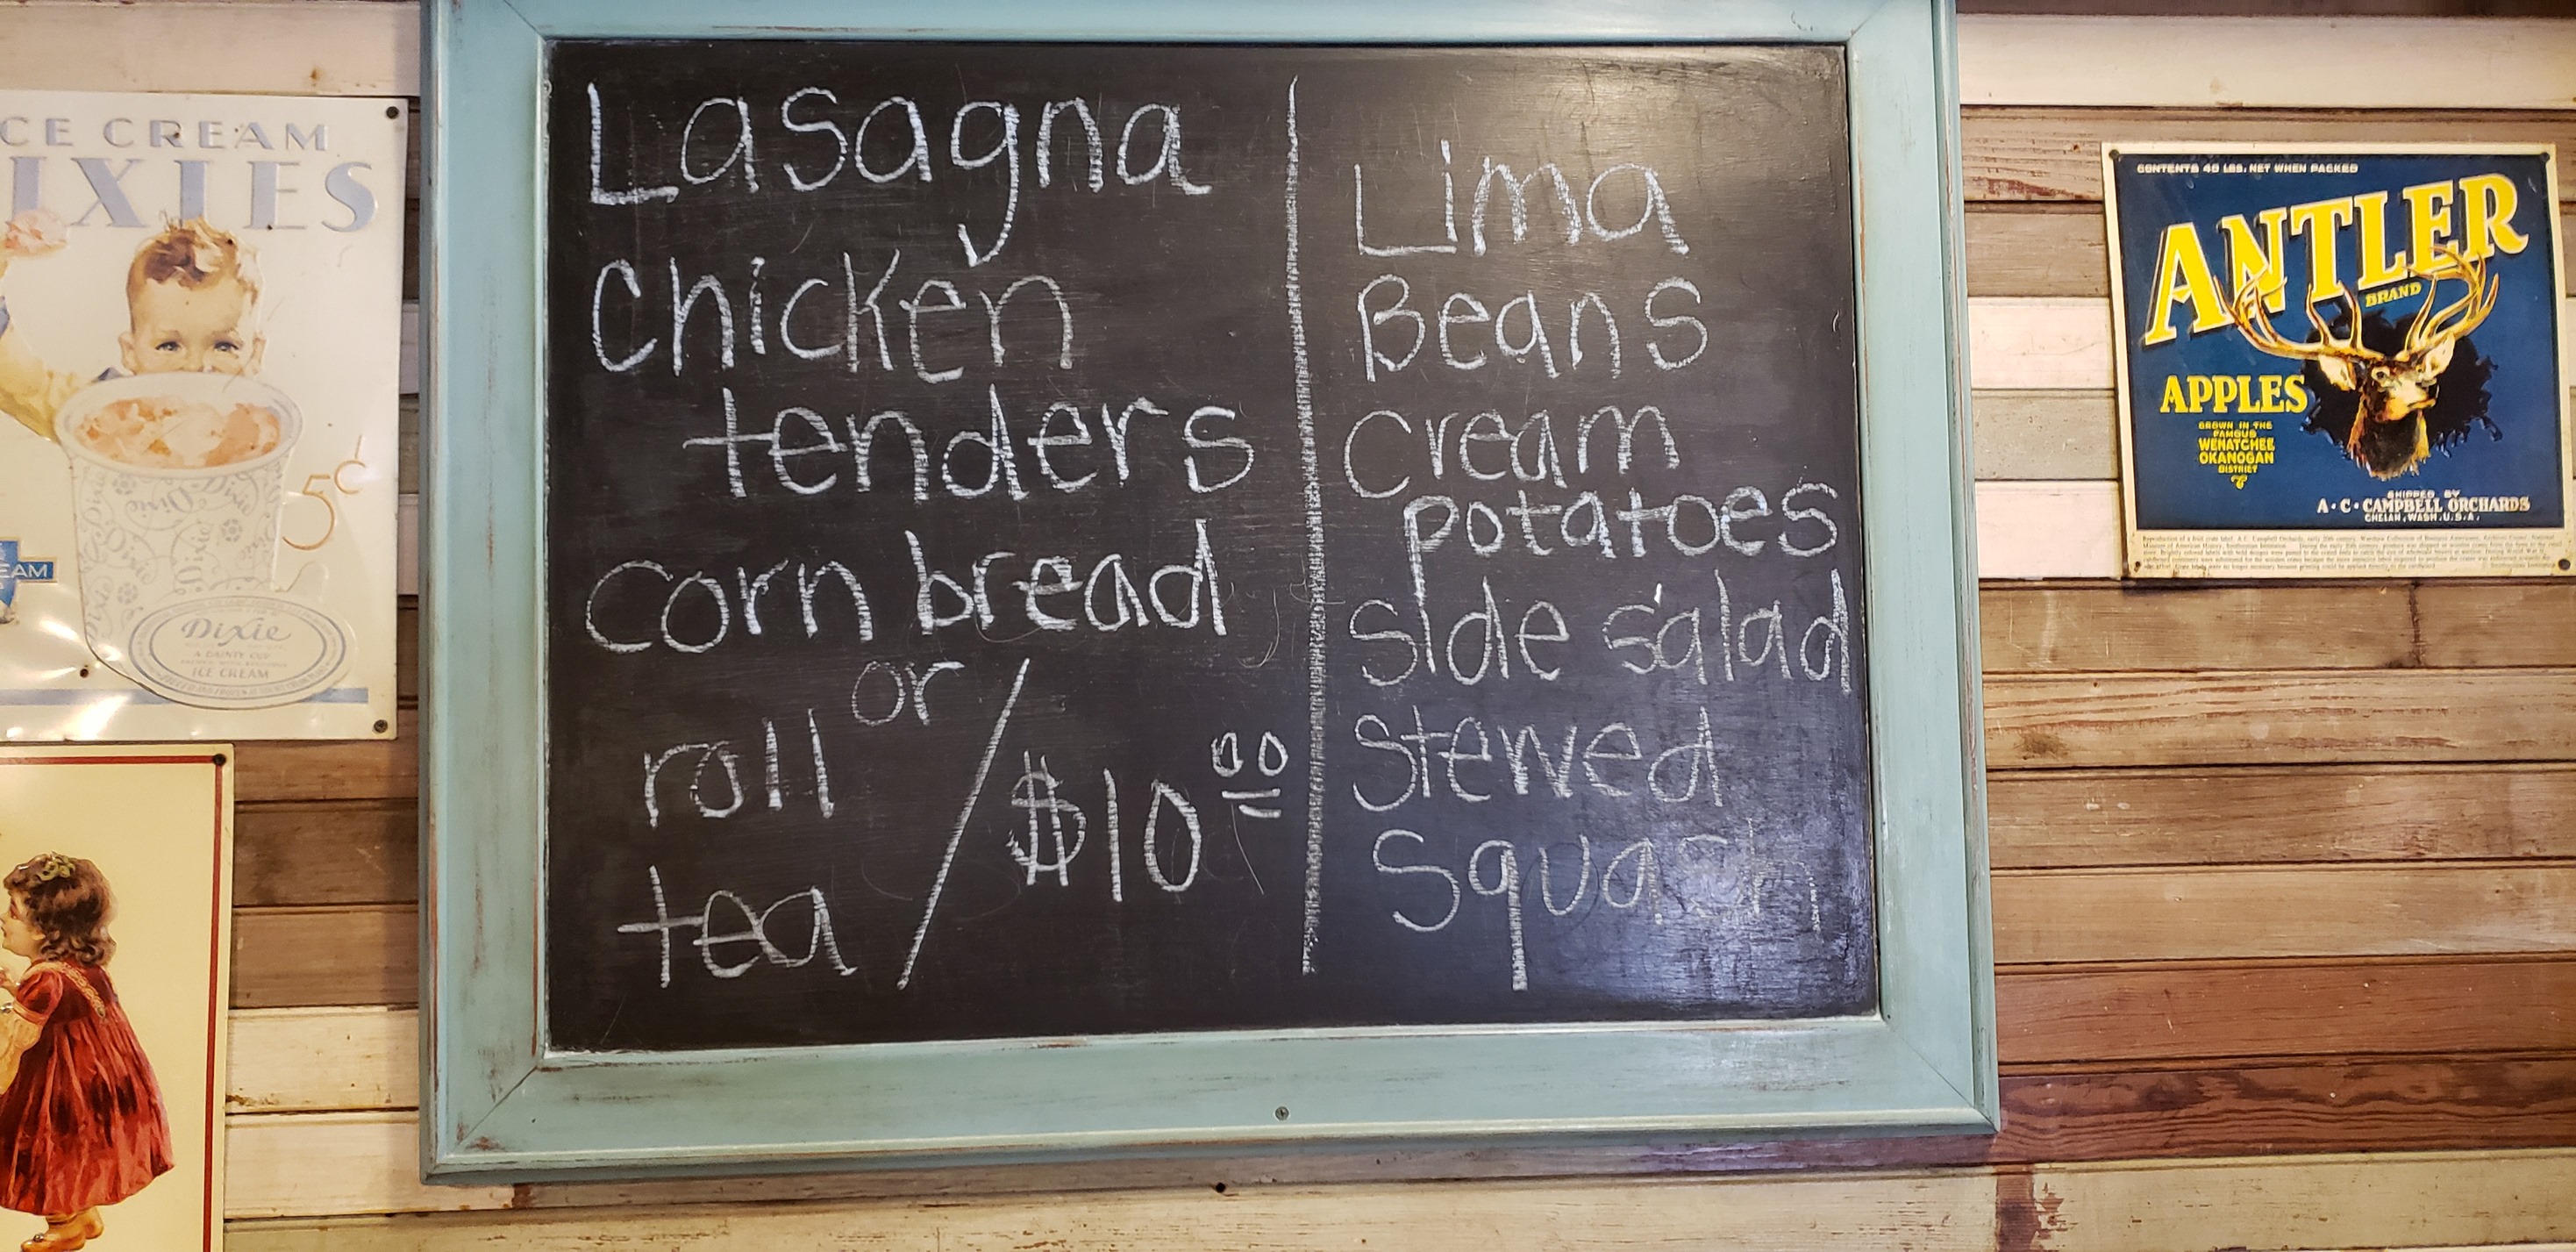 Lasagna
Chicken
tenders
corn bread
or
roll
tea / $10.00
Lima
Beans
Cream
potatoes
side salad
stewed
Squash
CE CREAM
IXIES
5¢
EAM
Dixie
A DAINTY CUP
ICE CREAM
CONTENTS 40 LBS. NET WHEN PACKED
ANTLER
BRAND
APPLES
GROWN IN THE
FAMOUS
WENATCHEE
OKANOGAN
DISTRICT
SHIPPED BY
A·C·CAMPBELL ORCHARDS
CHELAN, WASH. U.S.A.